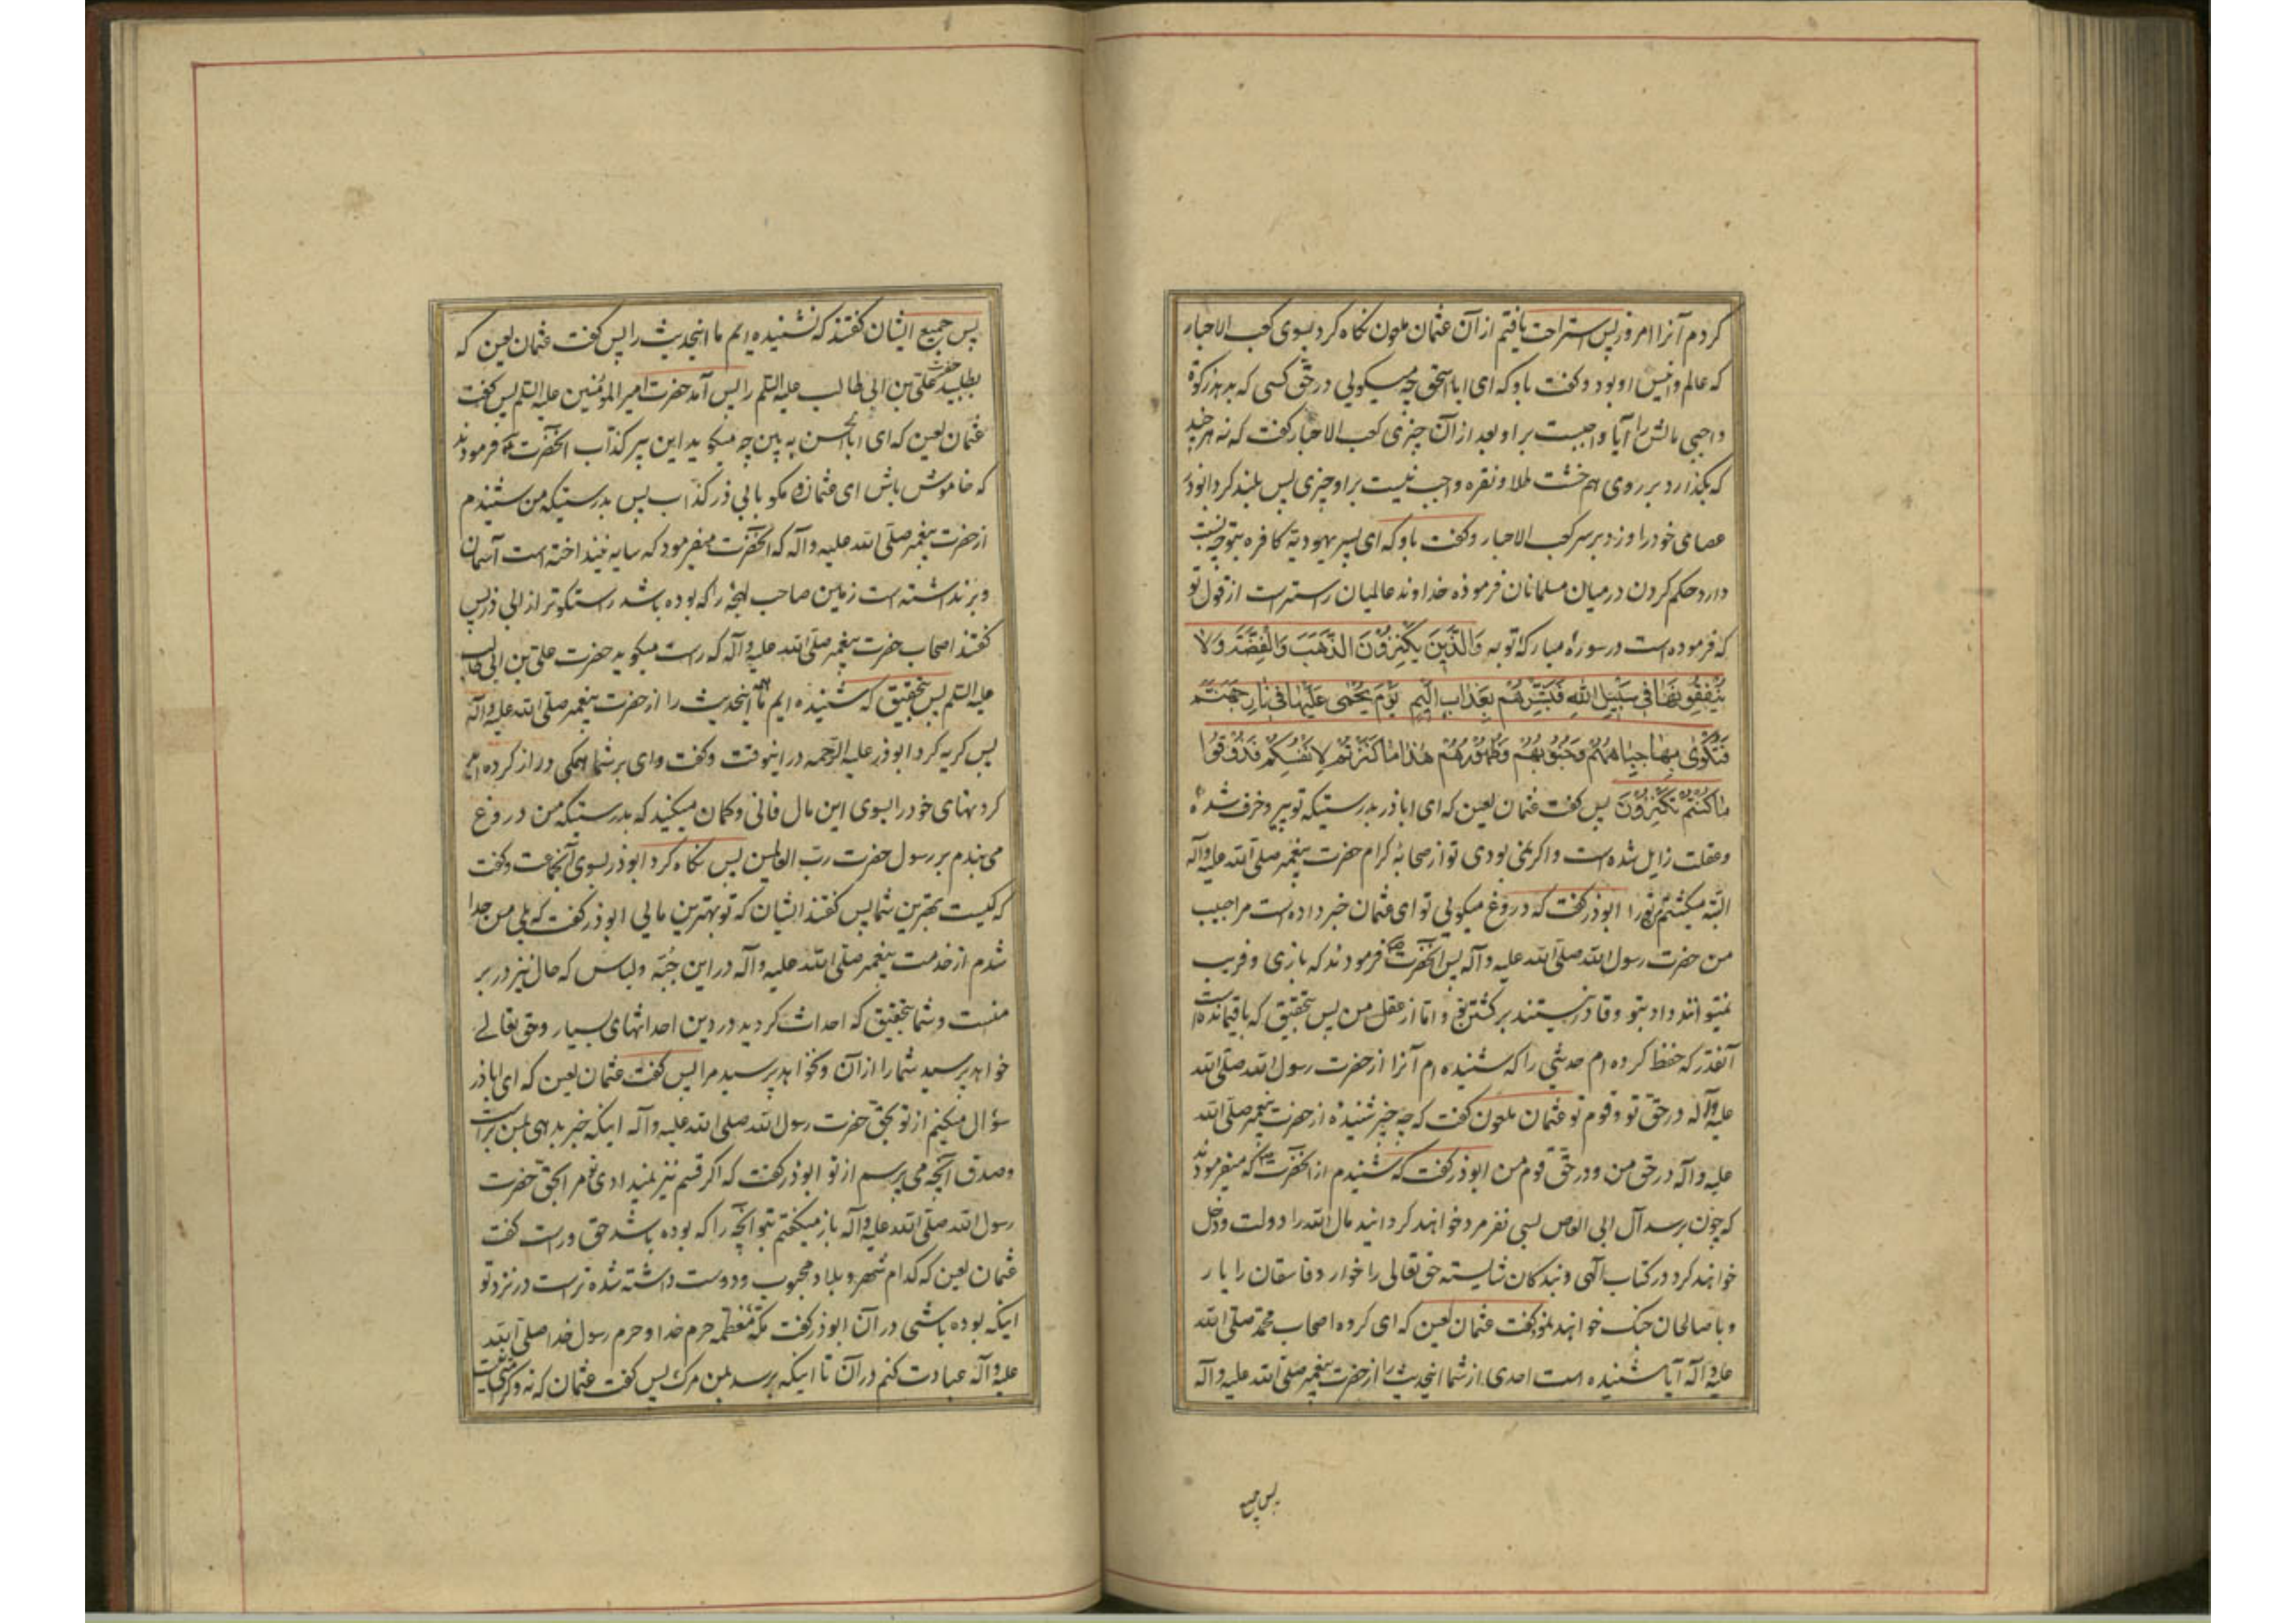 کردم آنرا امروز پس استراحت یافتم از آن عثمان ملعون نکاه کرد بسوی کعب الاحبار
که عالم و انیس او بود و کفت باو که ای ابا اسحق چه میکویی در حق کسی که بدهد زکوة
واجبی مالش را آیا واجبست بر او بعد از آن چیزی کعب الاحبار کفت که نه هر چند
که بکذارد بر روی هم خشت طلا و نقره واجب نیست بر او چیزی پس بلند کرد ابوذر
عصای خود را و زد بر سر کعب الاحبار و کفت باو که ای پسر یهودیه کافره بتو چه نسبت
دارد حکم کردن در میان مسلمانان فرموده خداوند عالمیان راستراست از قول تو
که فرموده است در سورهٔ مبارکهٔ توبه وَالَّذِینَ یَکْنِزُونَ الذَّهَبَ وَالْفِضَّةَ وَلَا
یُنْفِقُونَهَا فِی سَبِیلِ اللهِ فَبَشِّرْهُمْ بِعَذَابٍ اَلِیمٍ یَوْمَ یُحْمٰی عَلَیْهَا فِی نَارِ جَهَنَّمَ
فَتُکْوٰی بِهَا جِبَاهُهُمْ وَجُنُوبُهُمْ وَظُهُورُهُمْ هٰذَا مَا کَنَزْتُمْ لِاَنْفُسِکُمْ فَذُوقُوا
مَا کُنْتُمْ تَکْنِزُونَ پس کفت عثمان لعین که ای اباذر بدرستیکه تو پیر و خرف شدهٔ
و عقلت زایل شده است و اکر نمی بودی تو از صحابهٔ کرام حضرت پیغمبر صلّی الله علیه وآله
البته میکشتم تورا ابوذر کفت که دروغ میکویی تو ای عثمان خبر داده است مرا حبیب
من حضرت رسول الله صلّی الله علیه وآله پس آنحضرت فرمودند که بازی و فریب
نمیتوانند داد بتو و قادر نیستند بر کشتن تو و امّا از عقل من پس بتحقیق که باقیمانده است
آنقدر که حفظ کرده ام حدیثی را که شنیده ام آنرا از حضرت رسول الله صلّی الله
علیه وآله در حق تو و قوم تو عثمان ملعون کفت که چه چیز شنیدهٔ از حضرت پیغمبر صلّی الله
علیه وآله در حق من و در حق قوم من ابوذر کفت که شنیدم از آنحضرت که میفرمودند
که چون برسد آل ابی العاص بسی نفر مرد خواهند کردانید مال الله را دولت و دخل
خواهند کرد در کتاب الهی و بندکان شایسته حق تعالی را خوار و فاسقان را یار
و با صالحان جنک خواهند نمود کفت عثمان لعین که ای کروه اصحاب محمّد صلّی الله
علیه وآله آیا شنیده است احدی از شما اینحدیث را از حضرت پیغمبر صلّی الله علیه وآله
پس جمیع
پس جمیع ایشان کفتند که نشنیده ایم ما اینحدیث را پس کفت عثمان لعین که
بطلبید حضرت علیّ بن ابی طالب علیه السّلم را پس آمد حضرت امیر المؤمنین علیه السّلم پس کفت
عثمان لعین که ای ابا الحسن به بین چه میکوید این پیر کذّاب آنحضرت فرمودند
که خاموش باش ای عثمان و مکو بابی ذر کذّاب پس بدرستیکه من شنیدم
از حضرت پیغمبر صلّی الله علیه وآله که آنحضرت میفرمود که سایه نینداخته است آسمان
و برنداشته است زمین صاحب لهجهٔ را که بوده باشد راستکوتر از ابی ذر پس
کفتند اصحاب حضرت پیغمبر صلّی الله علیه وآله که راست میکوید حضرت علیّ بن ابی طالب
علیه السّلم پس بتحقیق که شنیده ایم ما اینحدیث را از حضرت پیغمبر صلّی الله علیه وآله
پس کریه کرد ابوذر علیه الرّحمه در اینوقت و کفت وای بر شما همکی دراز کرده اید
کردنهای خود را بسوی این مال فانی و کمان میکنید که بدرستیکه من دروغ
می بندم بر رسول حضرت ربّ العالمین پس نکاه کرد ابوذر بسوی آنجماعت و کفت
که کیست بهترین شما پس کفتند ایشان که تو بهترین مایی ابوذر کفت که بلی من جدا
شدم از خدمت پیغمبر صلّی الله علیه وآله در این جبّه و لباس که حال نیز در بر
منست و شما بتحقیق که احداث کردید در دین احداثهای بسیار و حق تعالی
خواهد پرسید شما را از آن و نخواهد پرسید مرا پس کفت عثمان لعین که ای اباذر
سؤال میکنم از تو بحق حضرت رسول الله صلی الله علیه وآله اینکه خبر بدهی بمن براست
و صدق آنچه می پرسم از تو ابوذر کفت که اکر قسم نیز نمیدادی مرا بحق حضرت
رسول الله صلّی الله علیه وآله باز میکفتم بتو آنچه را که بوده باشد حق و راست کفت
عثمان لعین که کدام شهر و بلاد محبوب و دوست داشته شده تر است در نزد تو
اینکه بوده باشی در آن ابوذر کفت مکّه معظّمه حرم خدا و حرم رسول خدا صلی الله
علیه وآله عبادت کنم در آن تا اینکه برسد بمن مرک پس کفت عثمان که نه و